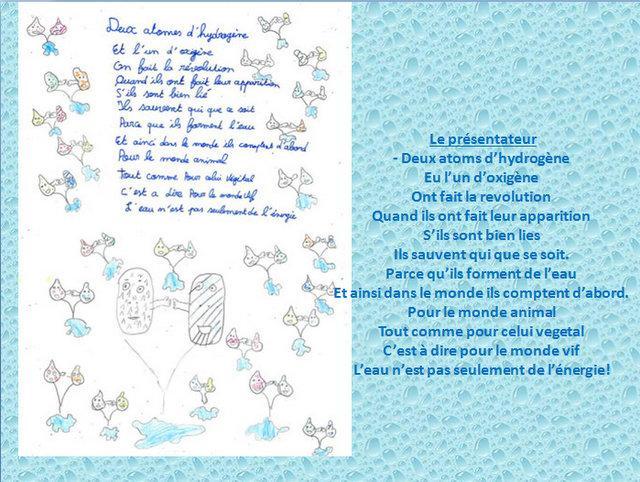 Deux atomes d'hydrogène
Et l'un d'oxigène
On fait la révolution
Quand ils ont fait leur apparition
S'ils sont bien lié
Ils sauvent qui que ce soit
Parce que ils forment l'eau
Et ainsi dans le monde ils comptent d'abord
Pour le monde animal
Tout comme Pour celui végétal
C'est a dire Pour le monde vif
L'eau n'est pas seulement de l'énergie
Le présentateur
- Deux atoms d'hydrogène
Eu l'un d'oxigène
Ont fait la revolution
Quand ils ont fait leur apparition
S'ils sont bien lies
Ils sauvent qui que se soit.
Parce qu'ils forment de l'eau
Et ainsi dans le monde ils comptent d'abord.
Pour le monde animal
Tout comme pour celui vegetal
C'est à dire pour le monde vif
L'eau n'est pas seulement de l'énergie!